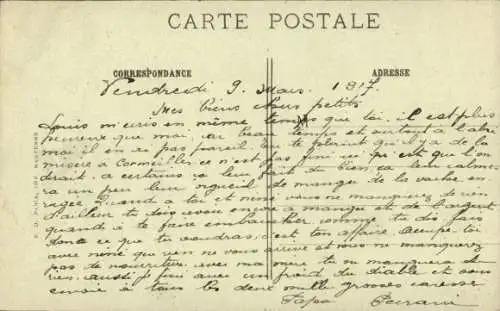 CARTE POSTALE
CORRESPONDANCE
ADRESSE
Vendredi 9 Mars 1917
Mes biens chers petits
Louis m'ecris en même temps que toi. il est plus
heureux que moi, au beau temps et surtout à l'abri
moi il en ai pas pareil tu te plaint qu'il y a de la
misère a Cormeilles ce n'est pas fini qui
drait. a certains ça leur fait du bien, ça
ra un peu leur orgueil de manger de la vache en
ragée. Quand a toi et nene vous ne manquerez de rien
d'ailleur tu dois avoir encore a manger et de l'argent
quand à te faire embaucher comme tu dis fais
donc ce que tu voudras, c'est ton affaire. occupe toi
avec nene que rien ne vous arrive et vous ne manquerez
pas de nourriture. avec ma mere tu ne manquera de
rien. aussi je fini avec un froid du diable et vous
envoie à tous les deux mille grosses caresses
Papa